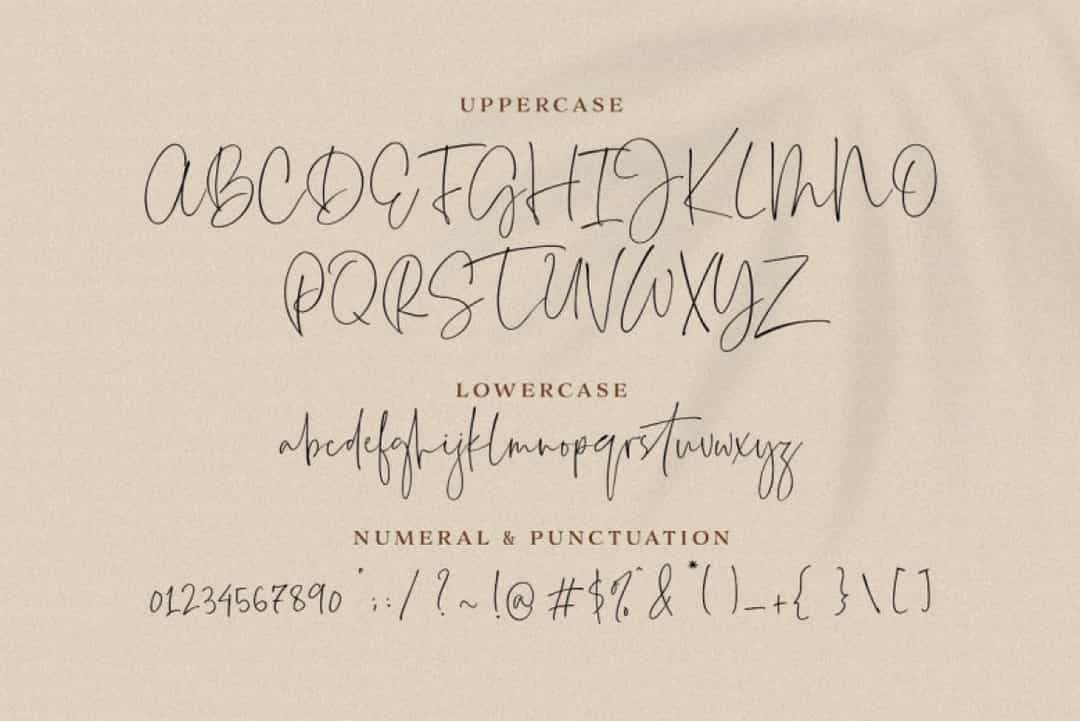 UPPERCASE
ABCDEFGHIJKLMNO
PQRSTUVWXYZ
LOWERCASE
abcdefghijklmnopqrstuvwxyz
NUMERAL & PUNCTUATION
01234567890 ; : / ? ~ ! @ # $ % ^ & * ( ) _ + { } \ [ ]